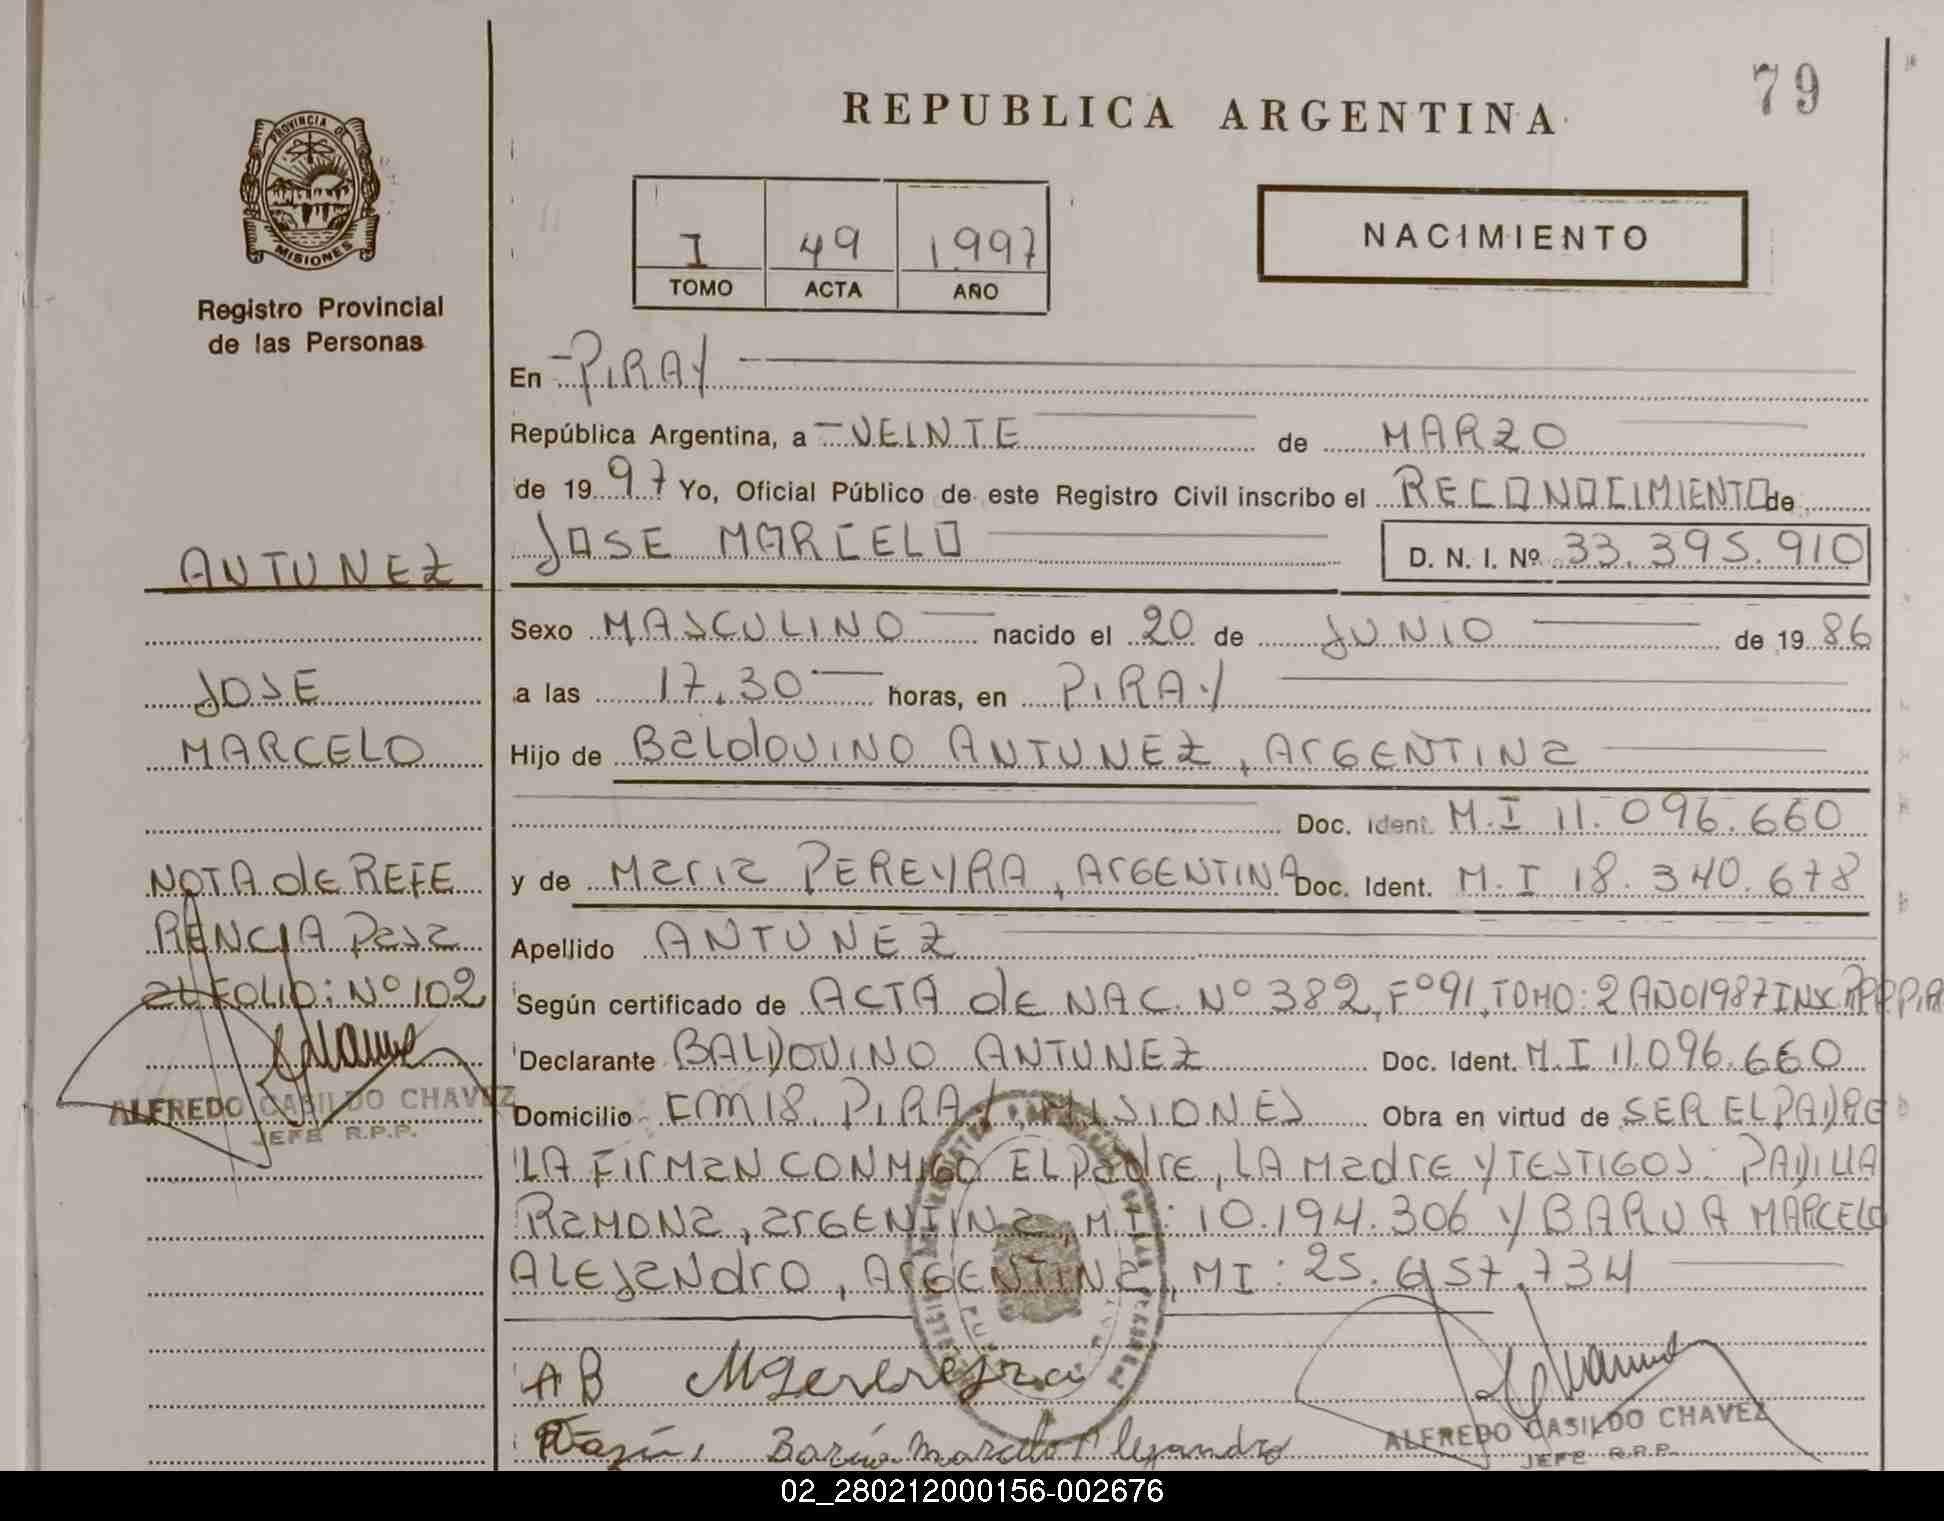 79
REPUBLICA ARGENTINA
PROVINCIA DE
MISIONES
Registro Provincial
de las Personas
I 49 1.997
TOMO ACTA AÑO
NACIMIENTO
En PIRAY
República Argentina, a VEINTE de MARZO
de 1997 Yo, Oficial Público de este Registro Civil inscribo el RECONOCIMIENTO de
JOSE MARCELO D. N. I. Nº 33.395.910
ANTUNEZ
Sexo MASCULINO nacido el 20 de JUNIO de 1986
JOSE
a las 17.30 horas, en PIRAY
MARCELO
Hijo de BaldOVINO ANTUNEZ, ArGENTINa
Doc. Ident. M.I 11.096.660
NOTA dE REFE
y de MariA PEREYRA, ArGENTINA Doc. Ident. M.I 18.340.678
RENCIA Pasa
Apellido ANTUNEZ
al FOLIO: Nº 102
Según certificado de ACTA dE NAC. Nº 382, Fº 91, TOMO: 2 AÑO 1987 INSC.
Declarante BALDOVINO ANTUNEZ Doc. Ident. M.I 11.096.660
ALFREDO CASILDO CHAVEZ
JEFE R.P.P.
Domicilio KM 18. PIRAY, MISIONES Obra en virtud de SER EL PADRE
LA FIrMaN CONMIGO EL PadrE, LA MadrE Y TESTIGOS: PADILLA
RaMONa, arGENTINa, MI: 10.194.306 Y BARUA MARCELO
ALEJaNdrO, ArGENTINa, MI: 25.657.734
AB
Barúa Marcelo Alejandro
ALFREDO CASILDO CHAVEZ
JEFE R.P.P.
02_280212000156-002676